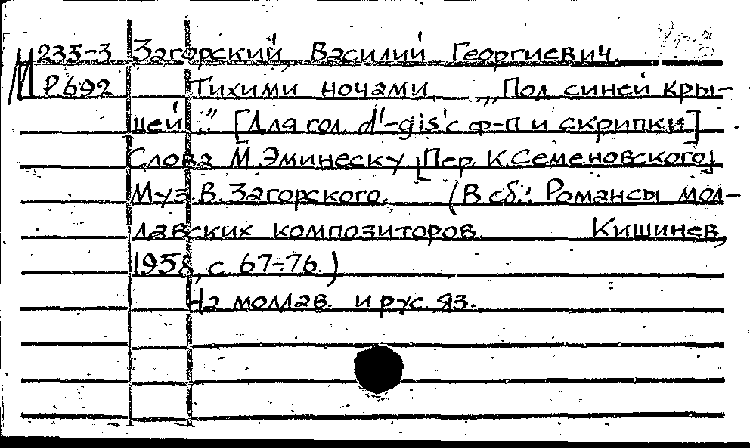 М 235-3 Загорский, Василий Георгиевич.
Р692 Тихими ночами. „Под синей кры-
шей.." [Для гол. d'-gis² с ф-п и скрипки]
Слова М. Эминеску [Пер. К. Семеновского]
Муз. В. Загорского. (В сб.: Романсы мол-
давских композиторов. Кишинев,
1958, с. 67-76.)
На молдав. и рус. яз.